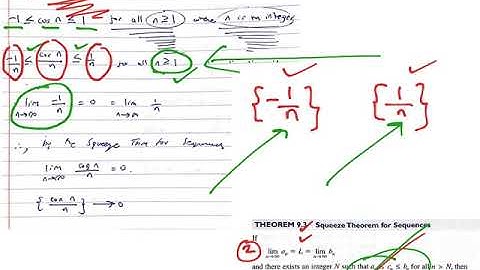 -1 ≤ cos n ≤ 1 for all n ≥ 1 where n is an integer
-1/n ≤ cos n/n ≤ 1/n for all n ≥ 1
lim n→∞ -1/n = 0 = lim n→∞ 1/n
∴, by the Squeeze Thm for Sequences
lim n→∞ cos n/n = 0.
{cos n/n} → 0
{-1/n} {1/n}
THEOREM 9.3 Squeeze Theorem for Sequences
2 If
lim n→∞ aₙ = L = lim n→∞ bₙ
and there exists an integer N such that aₙ ≤ cₙ ≤ bₙ for all n > N, then